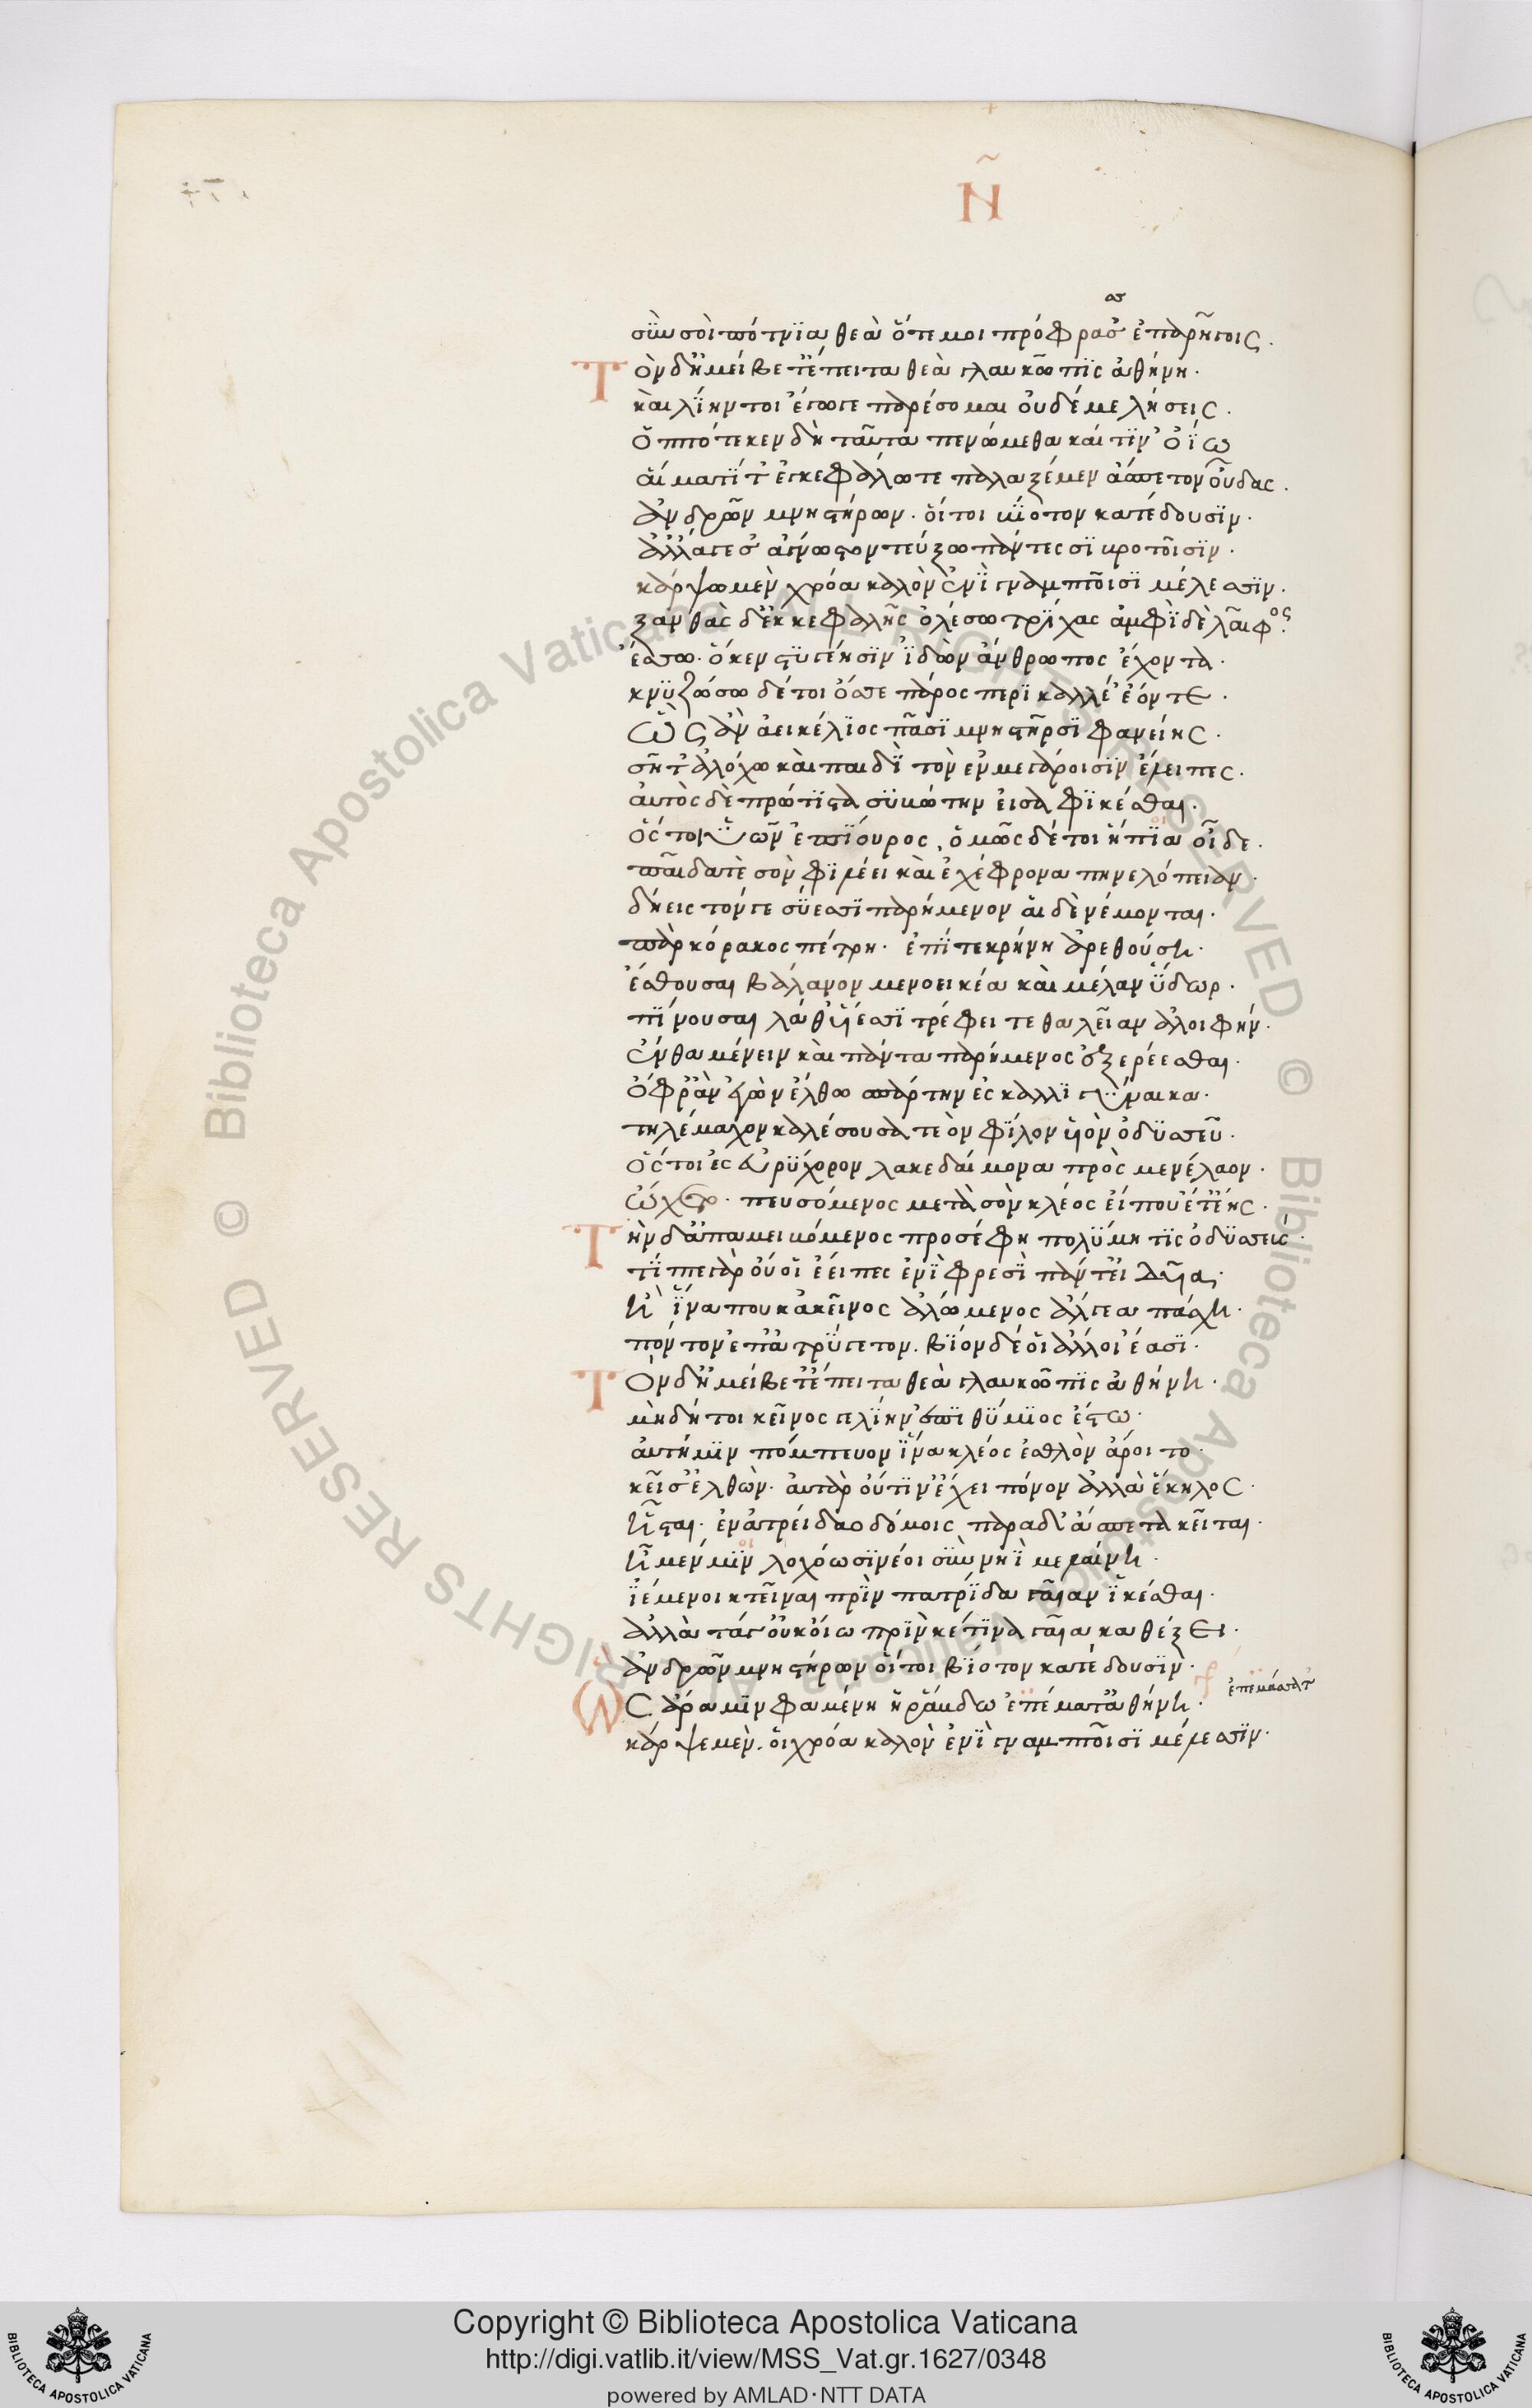 Ν̃
ας
σὺν σοὶ πότνϊα θεὰ ὅτε μοι πρόφρασσ' ἐπαρήγοις.
Τὸν δ' ἠμείβετ' ἔπειτα θεὰ γλαυκῶπϊς ἀθήνη.
καὶ λίην τοι ἔγωγε παρέσομαι οὐδέ με λήσεις.
ὁππότε κεν δὴ ταῦτα πενώμεθα καί τϊν' ὀΐω
αἵματί τ' ἐγκεφάλω τε παλαξέμεν ἄσπετον οὖδας.
ἀνδρῶν μνηστήρων. οἵ τοι βίοτον κατέδουσϊν.
ἀλλ' ἄγε σ' ἄγνωστον τεύξω πάντεσσϊ βροτοῖσϊν.
κάρψω μὲν χρόα καλὸν ἐνὶ γναμπτοῖσϊ μέλεσσϊν.
ξανθὰς δ' ἐκ κεφαλῆς ὀλέσω τρίχας ἀμφὶ δὲ λαῖφος.
ἕσσω. ὅ κεν στυγέησϊν ἰδὼν ἄνθρωπος ἔχοντα.
κνυζώσω δέ τοι ὄσσε πάρος περϊκαλλέ' ἐόντε.
ὡς ἂν ἀεικέλϊος πᾶσϊ μνηστῆρσϊ φανείης.
σῆ τ' ἀλόχω καὶ παιδὶ τὸν ἐν μεγάροισϊν ἔλειπες.
αὐτὸς δὲ πρώτϊστα συβώτην εἰσαφϊκέσθαι.
οι
ὅς τοι ὑῶν ἐπϊουρος, ὁμῶς δέ τοι ἤπϊα οἶδε.
παῖδα τὲ σὸν φϊλέει καὶ ἐχέφρονα πηνελόπειαν.
δήεις τόν γε σύεσσϊ παρήμενον αἱ δὲ νέμονται.
πὰρ κόρακος πέτρη. ἐπί τε κρήνη ἀρεθούση.
ἔσθουσαι βάλανον μενοεικέα καὶ μέλαν ὕδωρ.
πίνουσαι τά θ' ὕεσσϊ τρέφει τεθαλεῖαν ἀλοιφήν.
ἔνθα μένειν καὶ πάντα παρήμενος ἐξερέεσθαι.
ὄφρ' ἂν ἐγὼν ἔλθω σπάρτην ἐς καλλϊγύναικα.
τηλέμαχον καλέσουσα τεὸν φίλον υἱὸν ὀδυσσεῦ.
ὅς τοι ἐς εὐρύχορον λακεδαίμονα πρὸς μενέλαον.
ᾤχετο. πευσόμενος μετὰ σὸν κλέος εἴ που ἔτ' εἴης.
Τὴν δ' ἀπαμειβόμενος προσέφη πολύμητϊς ὀδυσσεύς.
τί πε γὰρ οὔ οἱ ἔειπες ἐνὶ φρεσὶ πάντ' εἰδυῖα.
ἦ ἵνα που κἀκεῖνος ἀλώμενος ἄλγεα πάσχη.
πόντον ἐπ' ἀτρύγετον. βίον δέ οἱ ἄλλοι ἔασι.
Τὸν δ' ἠμείβετ' ἔπειτα θεὰ γλαυκῶπϊς ἀθήνη.
μὴ δή τοι κεῖνος γε λίην ἐπϊ θύμϊος ἔστω.
αὐτή μϊν πόμπευον ἵνα κλέος ἐσθλὸν ἄροιτο.
κεῖσ' ἐλθὼν. ἀυτὰρ οὔ τϊν' ἔχει πόνον ἀλλὰ ἕκηλος.
ἧσται. ἐν ἀτρείδαο δόμοις παρὰ δ' ἄσπετα κεῖται.
οι
ἦ μέν μϊν λοχόωσϊ νέοι σὺν νηὶ μελαίνη.
ἱέμενοι κτεῖναι πρὶν πατρίδα γαῖαν ἱκέσθαι.
ἀλλὰ τά γ' οὐκ ὀίω πρὶν κέ τϊνα γαῖα καθέξει.
ἀνδρῶν μνηστήρων οἵ τοι βίοτον κατέδουσϊν.
Ὣς ἄρα μϊν φαμένη ῥάβδω ἐπέματ' ἀθήνη. ἐπεμάσσατ'
κάρψε μὲν. οἱ χρόα καλὸν ἐνὶ γναμπτοῖσϊ μέλεσσϊν.
Copyright © Biblioteca Apostolica Vaticana
http://digi.vatlib.it/view/MSS_Vat.gr.1627/0348
powered by AMLAD·NTT DATA